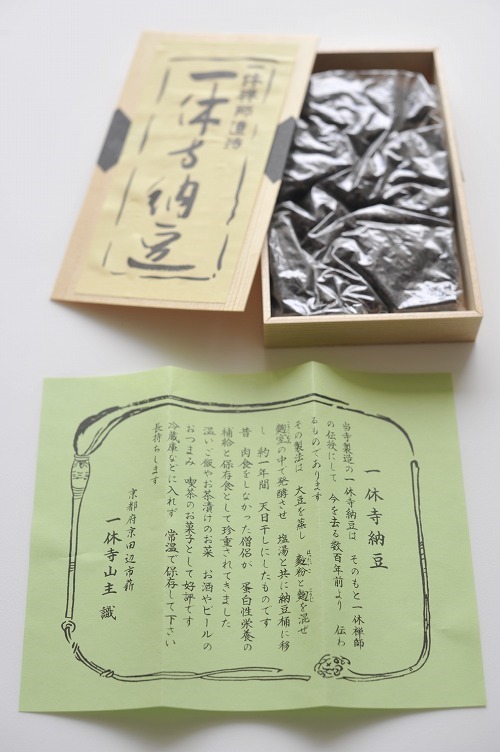 一休禅師直伝
一休寺納豆
一休寺納豆
当寺製造の一休寺納豆は　そのもと一休禅師
の伝授にして　今を去る数百年前より　伝わ
るものであります
その製法は　大豆を蒸し　麨粉と麹を混ぜ
はったいこ
こうじ
麹室の中で発酵させ　塩湯と共に納豆桶に移
し　約一年間　天日干しにしたものです
昔　肉食をしなかった僧侶が　蛋白性栄養の
補給と保存食として珍重されてきました
温いご飯やお茶漬けのお菜　お酒やビールの
おつまみ　喫茶のお菓子として好評です
冷蔵庫などに入れず　常温で保存して下さい
長持ちします
京都府京田辺市薪
一休寺山主　識